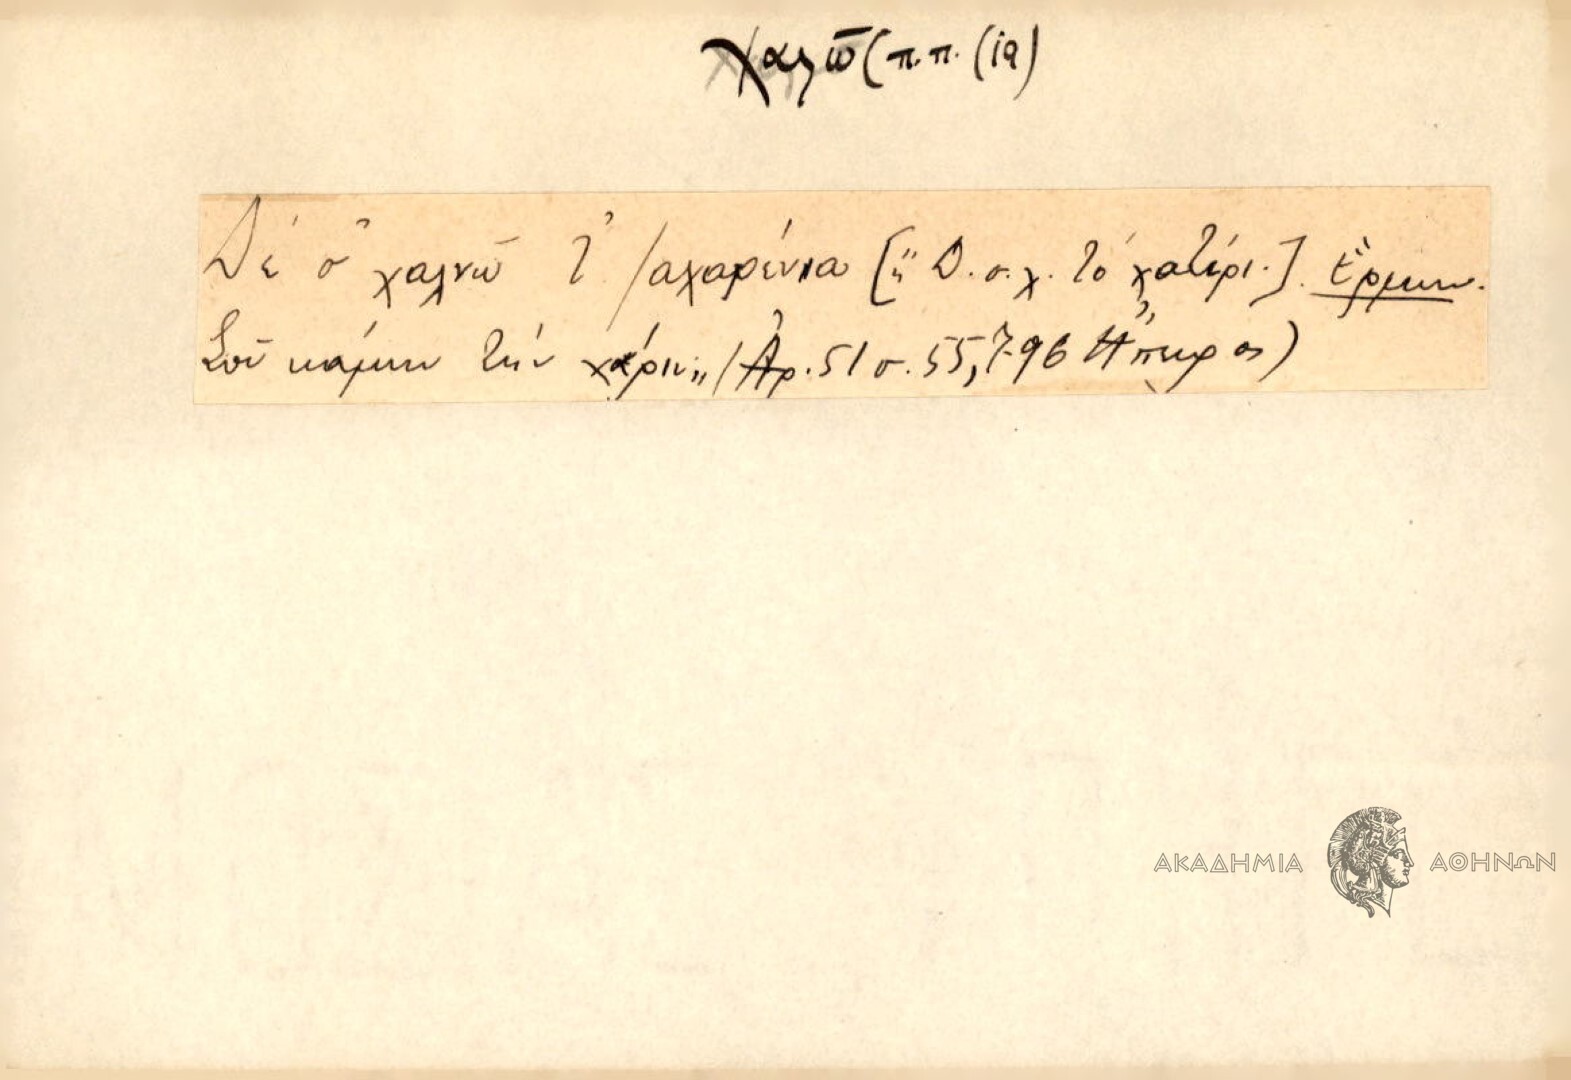 χαλῶ (π.π. (ια)
Δέ σ' χαλνῶ τ' ζαχαρένια [ἤ Δ. σ. χ. τό χατίρι.]. Ἑρμην.
Σοῦ κάμνω τήν χάριν„ (Ἀρ. 51 σ. 55, 796 Ἤπειρος)
ΑΚΑΔΗΜΙΑ ΑΘΗΝΩΝ